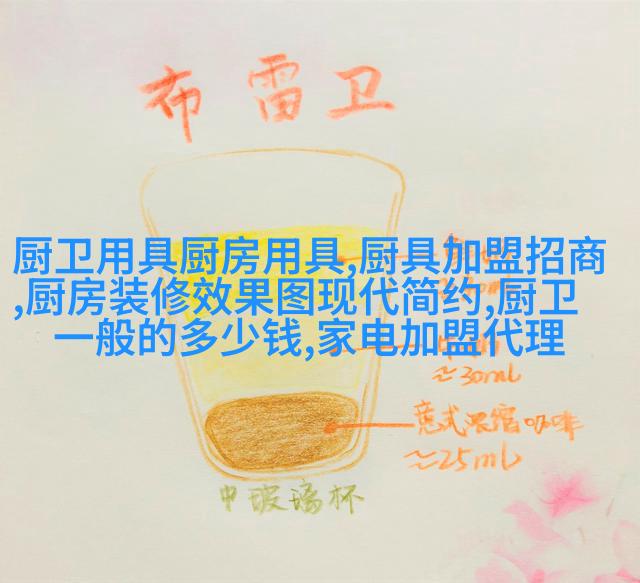 布雷卫
厨卫用具厨房用具,厨具加盟招商
,厨房装修效果图现代简约,厨卫
一般的多少钱,家电加盟代理
≈30ml
意式浓缩咖啡
≈25ml
中玻璃杯